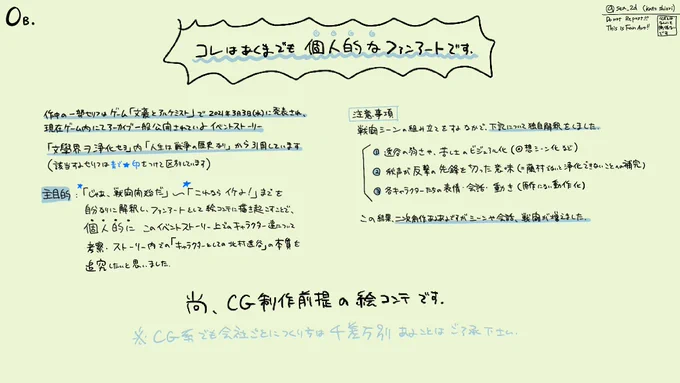 0B.
@sen_2d
Do not Repost!!
This is Fan Art!!
コレはあくまでも 個人的な ファンアートです.
作中の一部セリフはゲーム「文豪とアルケミスト」で2021年3月3日(水)に発表され、
現在ゲーム内にてアーカイブ一般公開されているイベントストーリー
「文學界ヲ浄化セヨ」内「人生は戦争の歴史なり」から引用しています
(該当するセリフは青で★印をつけて区別しています)
主目的:「じゃあ、戦闘開始だ」〜「これならイケよ!」までを
自分なりに解釈し、ファンアートとして絵コンテに描き起こすことで、
個人的に このイベントストーリー上でのキャラクター達について
考察・ストーリー内での「キャラクターとしての北村透谷」の本質を
追究したいと思いました。
注意事項
戦闘シーンの組み立てをするなかで、下記について独自解釈をしました。
① 透谷の弱さや、苦しさのビジュアル化 (回想シーン化など)
② 秋声が反撃の先鋒を切った意味 (=藤村でないと浄化できないことへの補完)
③ 各キャラクターたちの表情・会話・動き (原作にない動作化)
この結果、二次創作おなじみですがシーンや会話、戦闘が増えました。
尚、CG制作前提の絵コンテです.
※CG系でも会社ごとにつくり方は千差万別あることはご了承下さい.